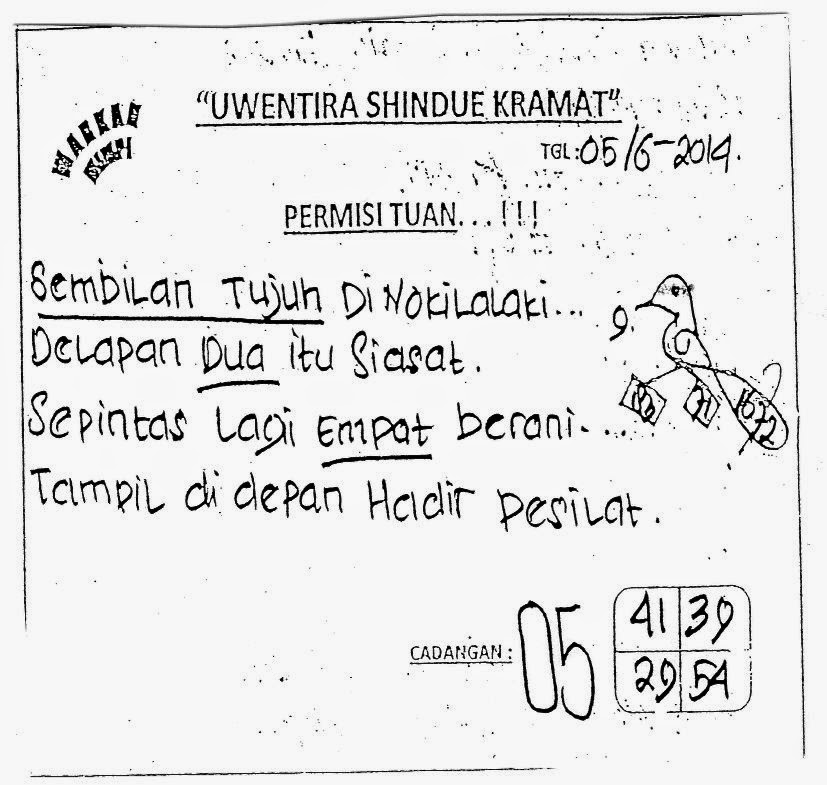 "UWENTIRA SHINDUE KRAMAT"
TGL:05/6-2014.
PERMISI TUAN...!!!
Sembilan Tujuh Di Nokilalaki...
Delapan Dua itu Siasat.
Sepintas Lagi Empat berani....
Tampil di depan Hadir Pesilat.
9.
CADANGAN: 05
41 39
29 54